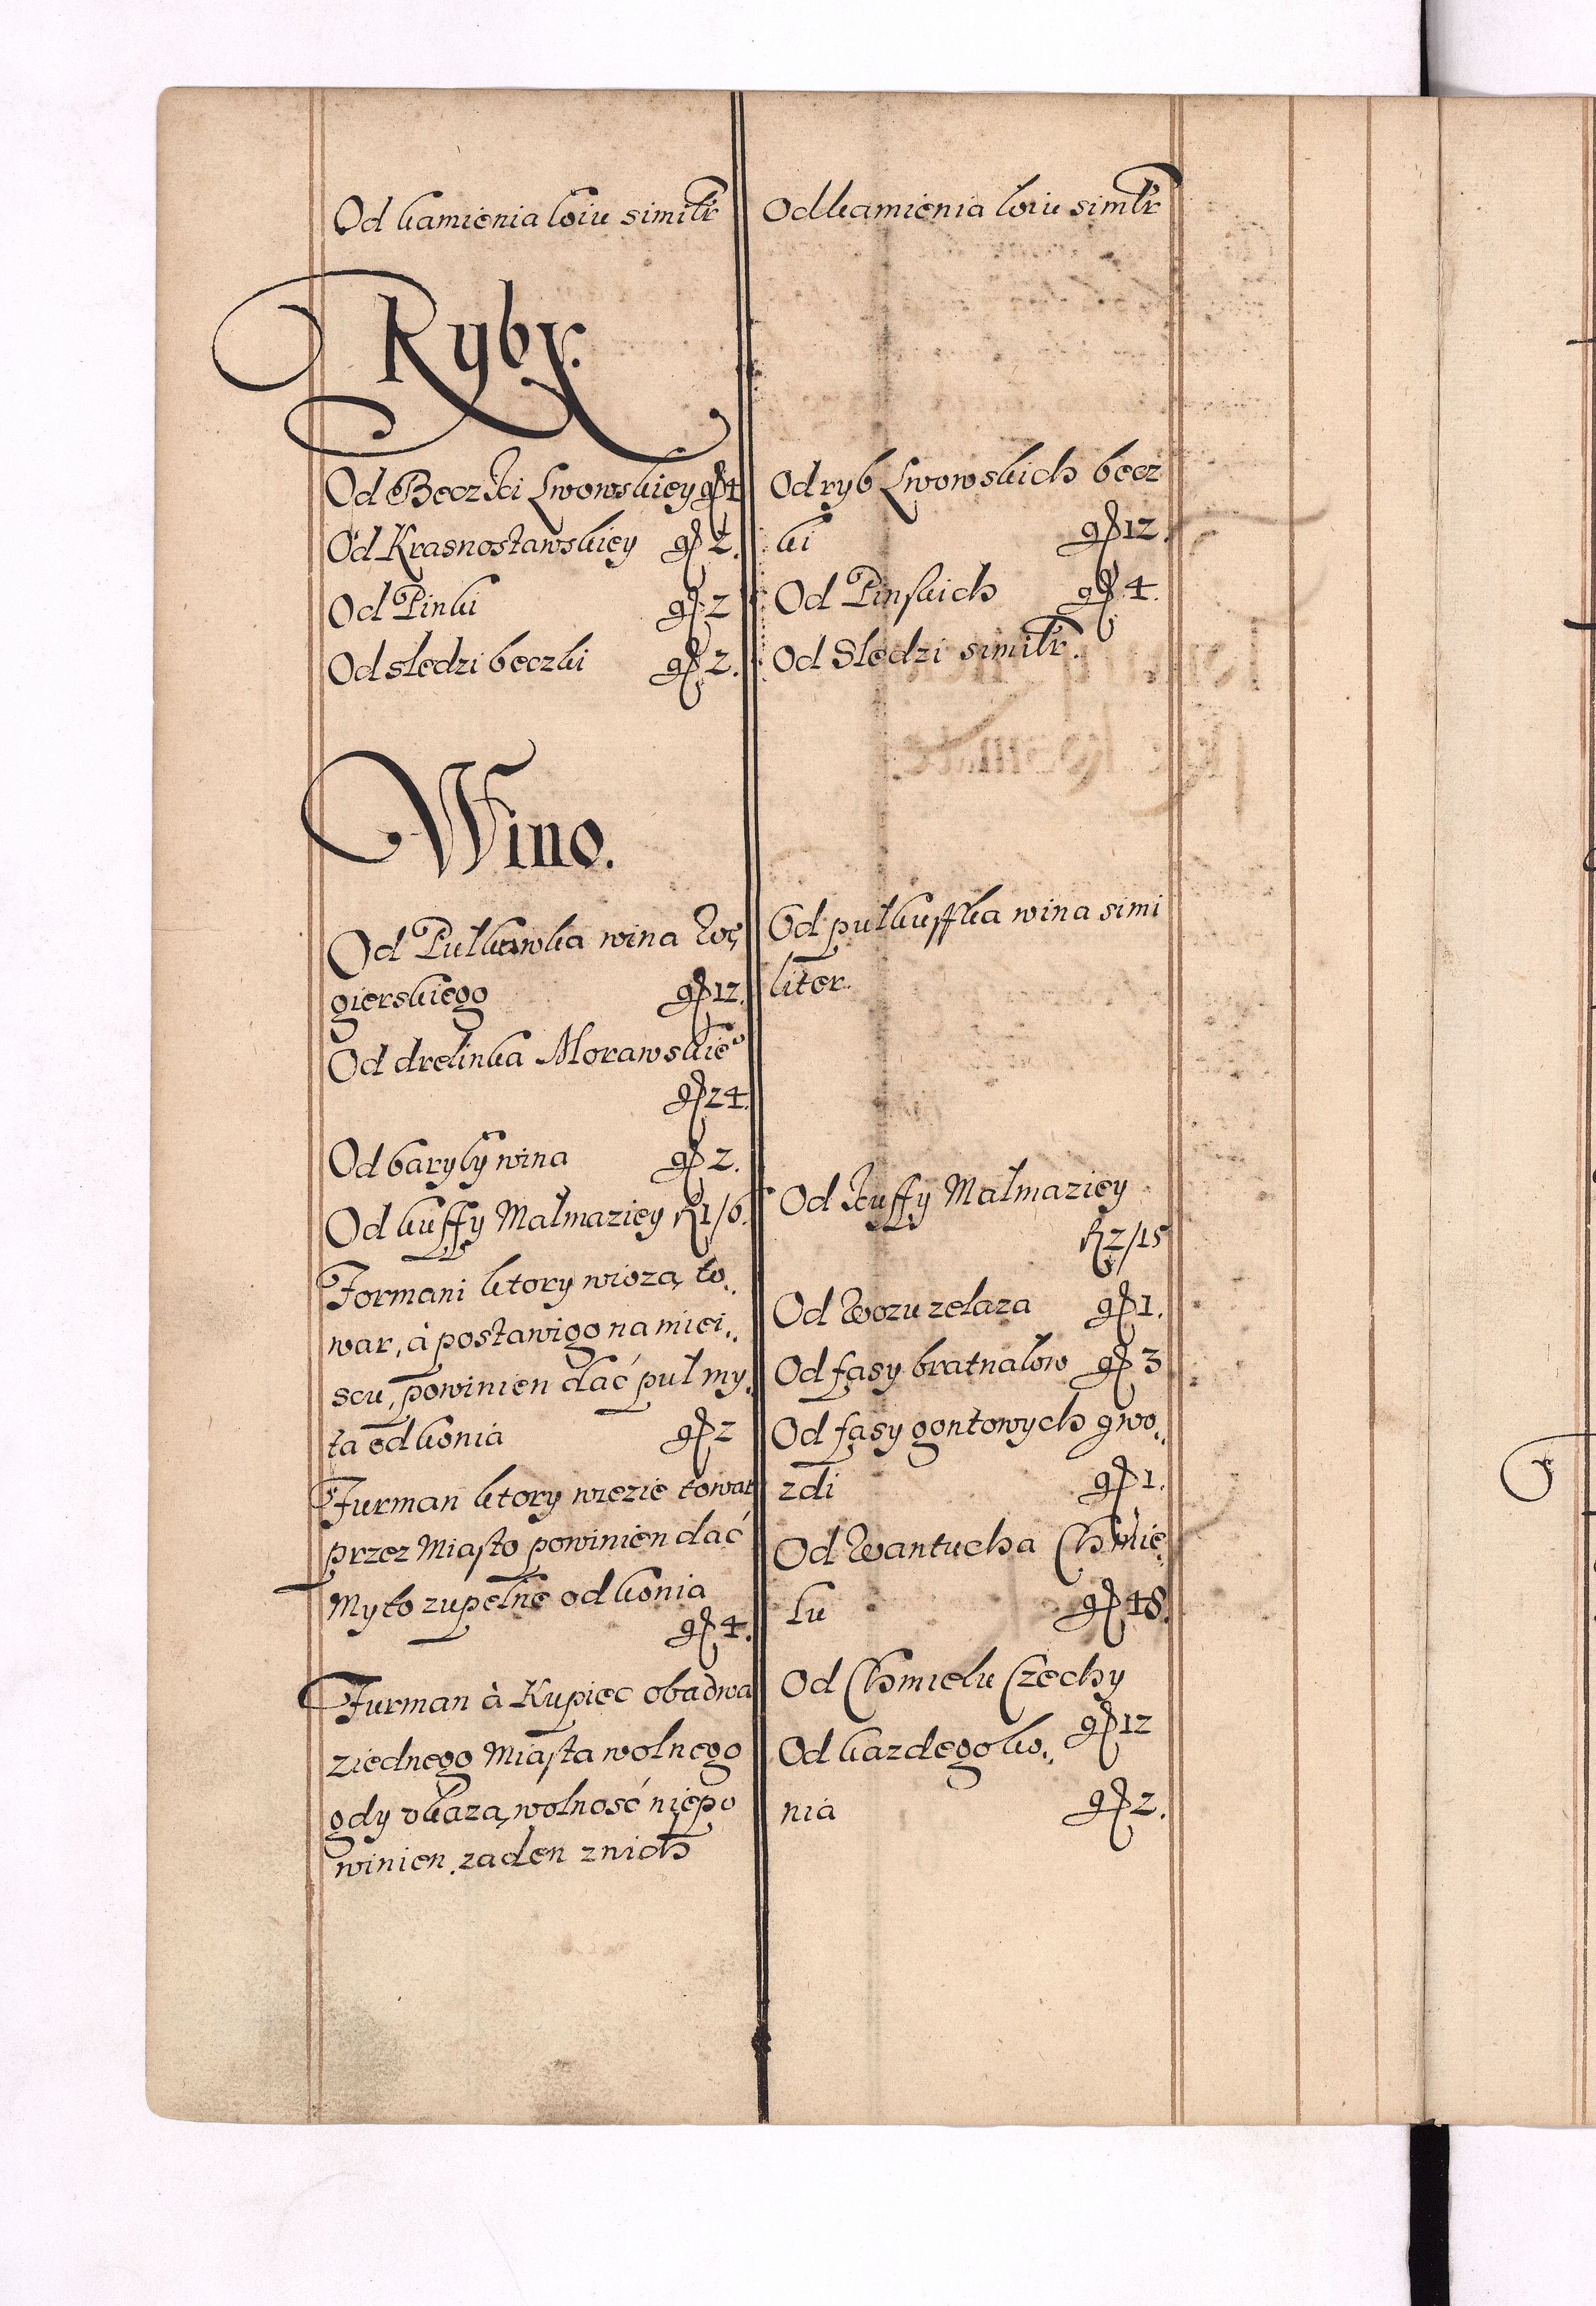 Od kamienia łoiu similr
Ryby.
Od Beczki Lwowskiey gr 4
Od Krasnostawskiey gr 2.
Od Pinki gr 2
Od sledzi beczki gr 2.
Wino.
Od Pułkuwka wina Wę
gierskiego gr 12.
Od drelinka Morawskieo
gr 24.
Od baryły wina gr 2.
Od kuffy Małmaziey fl 1/6.
Formani ktory wiozą to„
war, à postawi go na miei„
scu, powinien dać puł my„
ta od konia gr 2
Furman ktory wiezie towar
przez Miasto powinien dać
Myto zupełne od konia
gr 4.
Furman à Kupiec obadwa
ziednego Miasta wolnego
gdy vkazą wolność niepo
winien zaden znich
Od kamienia łoiu simlr
Od ryb Lwowskich becz
ki gr 12.
Od Pinskich gr 4.
Od Sledzi similr.
Od pułkuffka wina simi
liter.
Od kuffy Małmaziey
fl 2/15
Od Wozu zelaza gr 1.
Od fasy bratnalow gr 3
Od fasy gontowych gwo„
zdi gr 1.
Od Wantucha Chmie„
lu gr 48.
Od Chmielu Czechy
gr 12
Od kazdego ko„
nia gr 2.